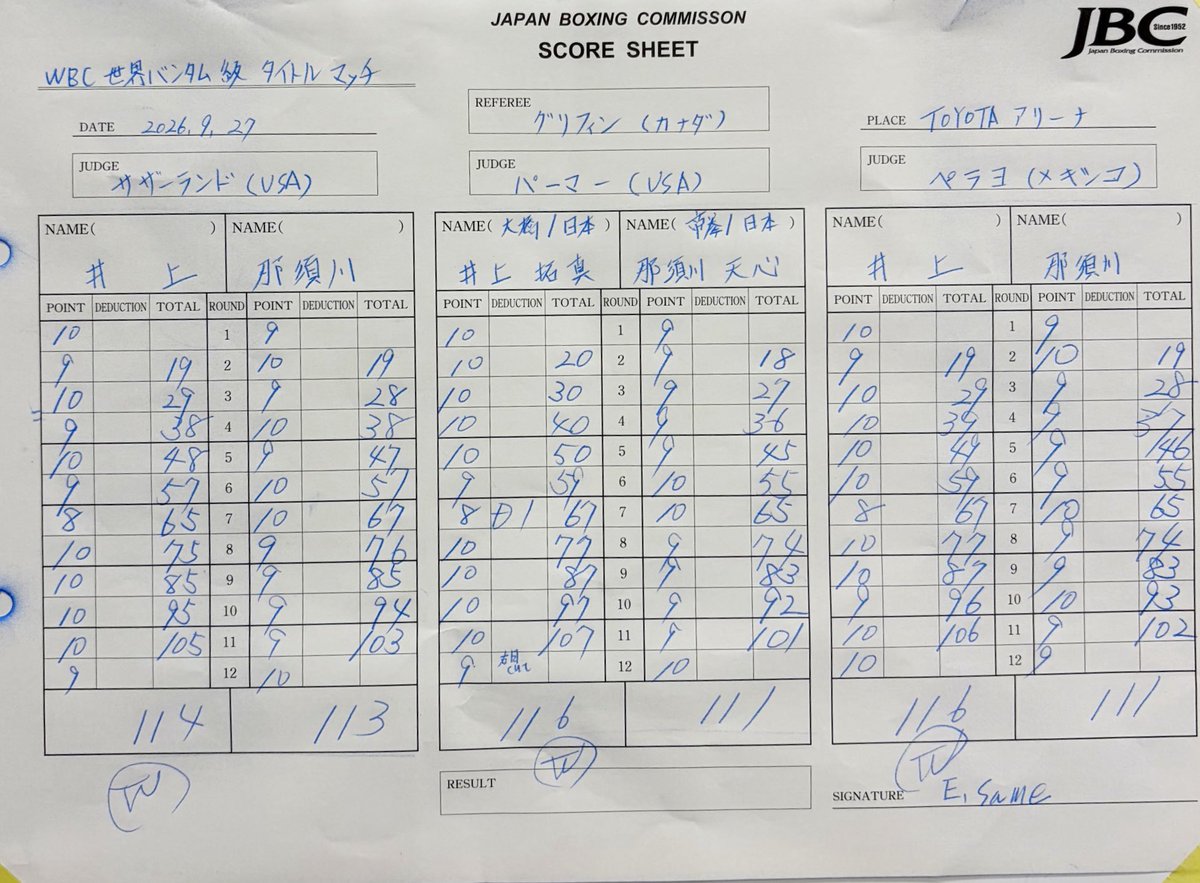 JAPAN BOXING COMMISSON
SCORE SHEET
JBC
Since1952
Japan Boxing Commission
WBC 世界バンタム級 タイトルマッチ
DATE 2026.9.27
REFEREE グリフィン (カナダ)
PLACE TOYOTA アリーナ
JUDGE サザーランド (USA)
JUDGE パーマー (USA)
JUDGE ペラヨ (メキシコ)
NAME( ) NAME( ) NAME( 大橋 / 日本 ) NAME( 帝拳 / 日本 ) NAME( ) NAME( )
井上 那須川 井上 拓真 那須川 天心 井上 那須川
POINT DEDUCTION TOTAL ROUND POINT DEDUCTION TOTAL POINT DEDUCTION TOTAL ROUND POINT DEDUCTION TOTAL POINT DEDUCTION TOTAL ROUND POINT DEDUCTION TOTAL
10 1 9 10 1 9 10 1 9
9 19 2 10 19 10 20 2 9 18 9 19 2 10 19
10 29 3 9 28 10 30 3 9 27 10 29 3 9 28
9 38 4 10 38 10 40 4 9 36 10 39 4 9 37
10 48 5 9 47 10 50 5 9 45 10 49 5 9 46
9 57 6 10 57 9 59 6 10 55 10 59 6 9 55
8 65 7 10 67 8 D1 67 7 10 65 8 67 7 10 65
10 75 8 9 76 10 77 8 9 74 10 77 8 9 74
10 85 9 9 85 10 87 9 9 83 10 87 9 9 83
10 95 10 9 94 10 97 10 9 92 9 96 10 10 93
10 105 11 9 103 10 107 11 9 101 10 106 11 9 102
9 12 10 9 12 10 10 12 9
114 113 116 111 116 111
RESULT
SIGNATURE E. Same